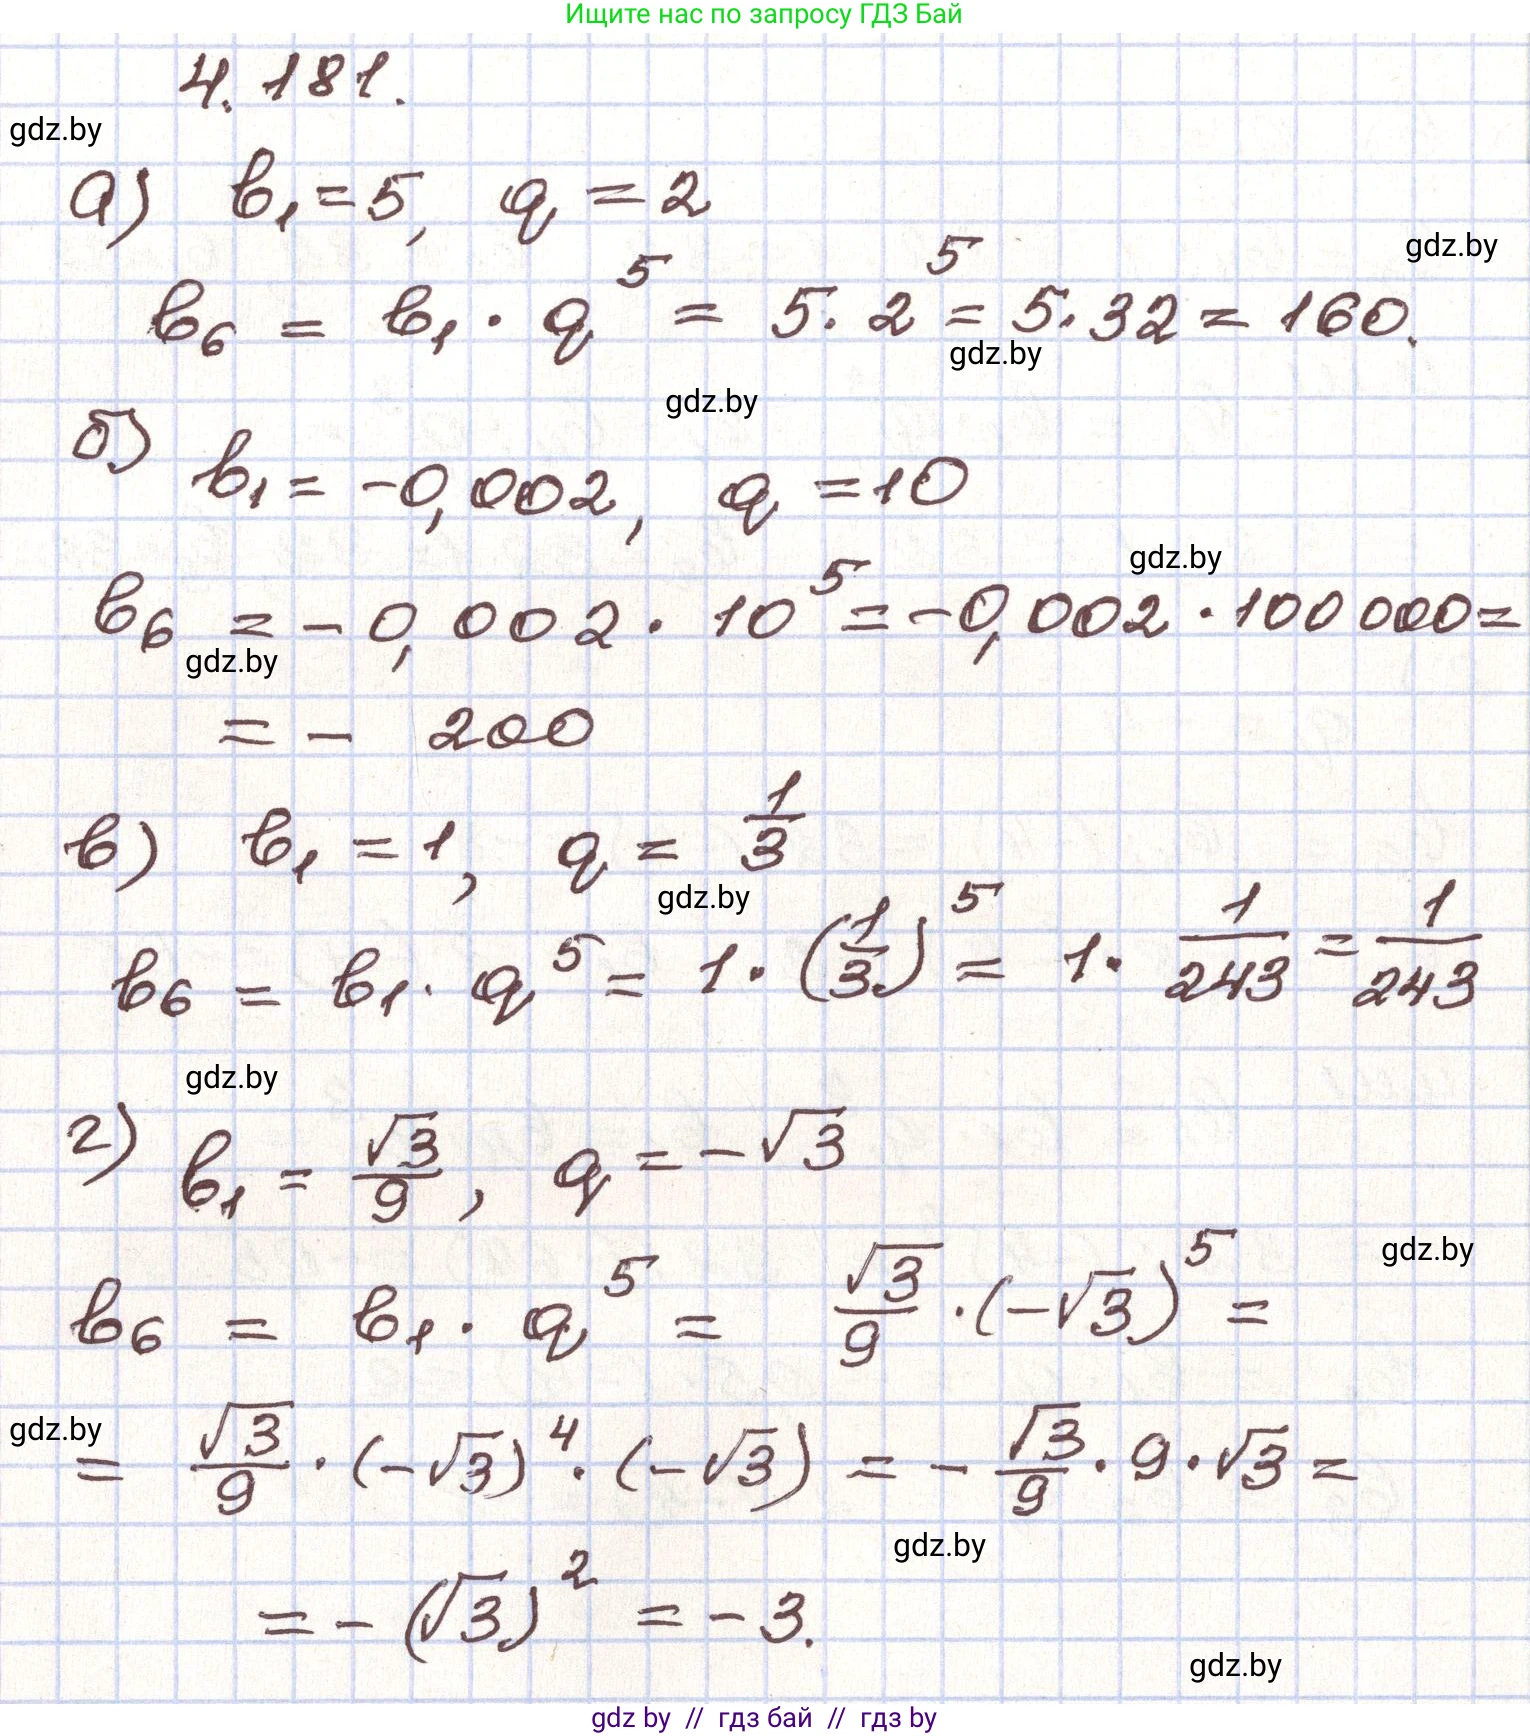 Ищите нас по запросу ГДЗ Бай
4.181.
gdz.by
а) b₁ = 5, q = 2
gdz.by
b₆ = b₁ · q⁵ = 5 · 2⁵ = 5 · 32 = 160.
gdz.by
gdz.by
б) b₁ = -0,002, q = 10
gdz.by
b₆ = -0,002 · 10⁵ = -0,002 · 100 000 =
gdz.by
= - 200
в) b₁ = 1, q = 1/3
gdz.by
b₆ = b₁ · q⁵ = 1 · (1/3)⁵ = 1 · 1/243 = 1/243
gdz.by
г) b₁ = √3/9, q = -√3
gdz.by
b₆ = b₁ · q⁵ = √3/9 · (-√3)⁵ =
gdz.by
= √3/9 · (-√3)⁴ · (-√3) = - √3/9 · 9 · √3 =
gdz.by
= - (√3)² = - 3.
gdz.by
gdz by // гдз бай // гдз by